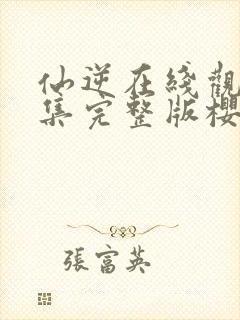 仙逆在綫觀
集完整版櫻
張富英